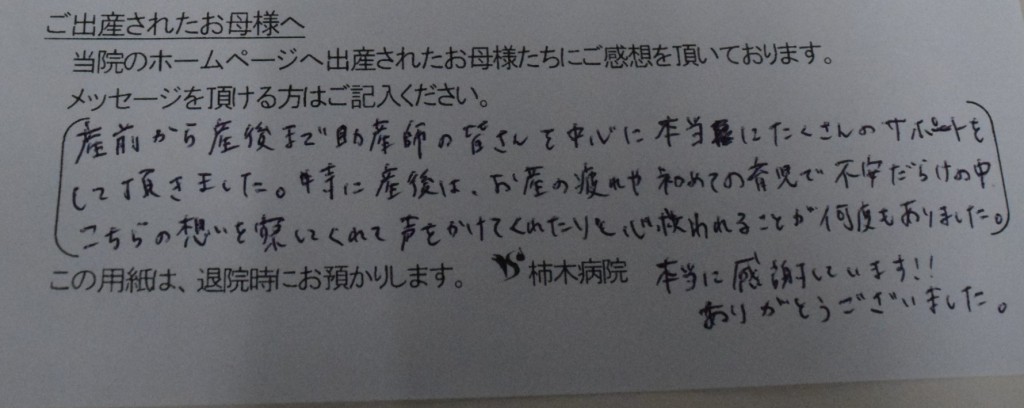 ご出産されたお母様へ
当院のホームページへ出産されたお母様たちにご感想を頂いております。
メッセージを頂ける方はご記入ください。
産前から産後まで助産師の皆さんを中心に本当にたくさんのサポートを
して頂きました。特に産後は、お産の疲れや初めての育児で不安だらけの中
こちらの想いを察してくれて声をかけてくれたりと心救われることが何度もありました。
この用紙は、退院時にお預かりします。 柿木病院 本当に感謝しています!!
ありがとうございました。